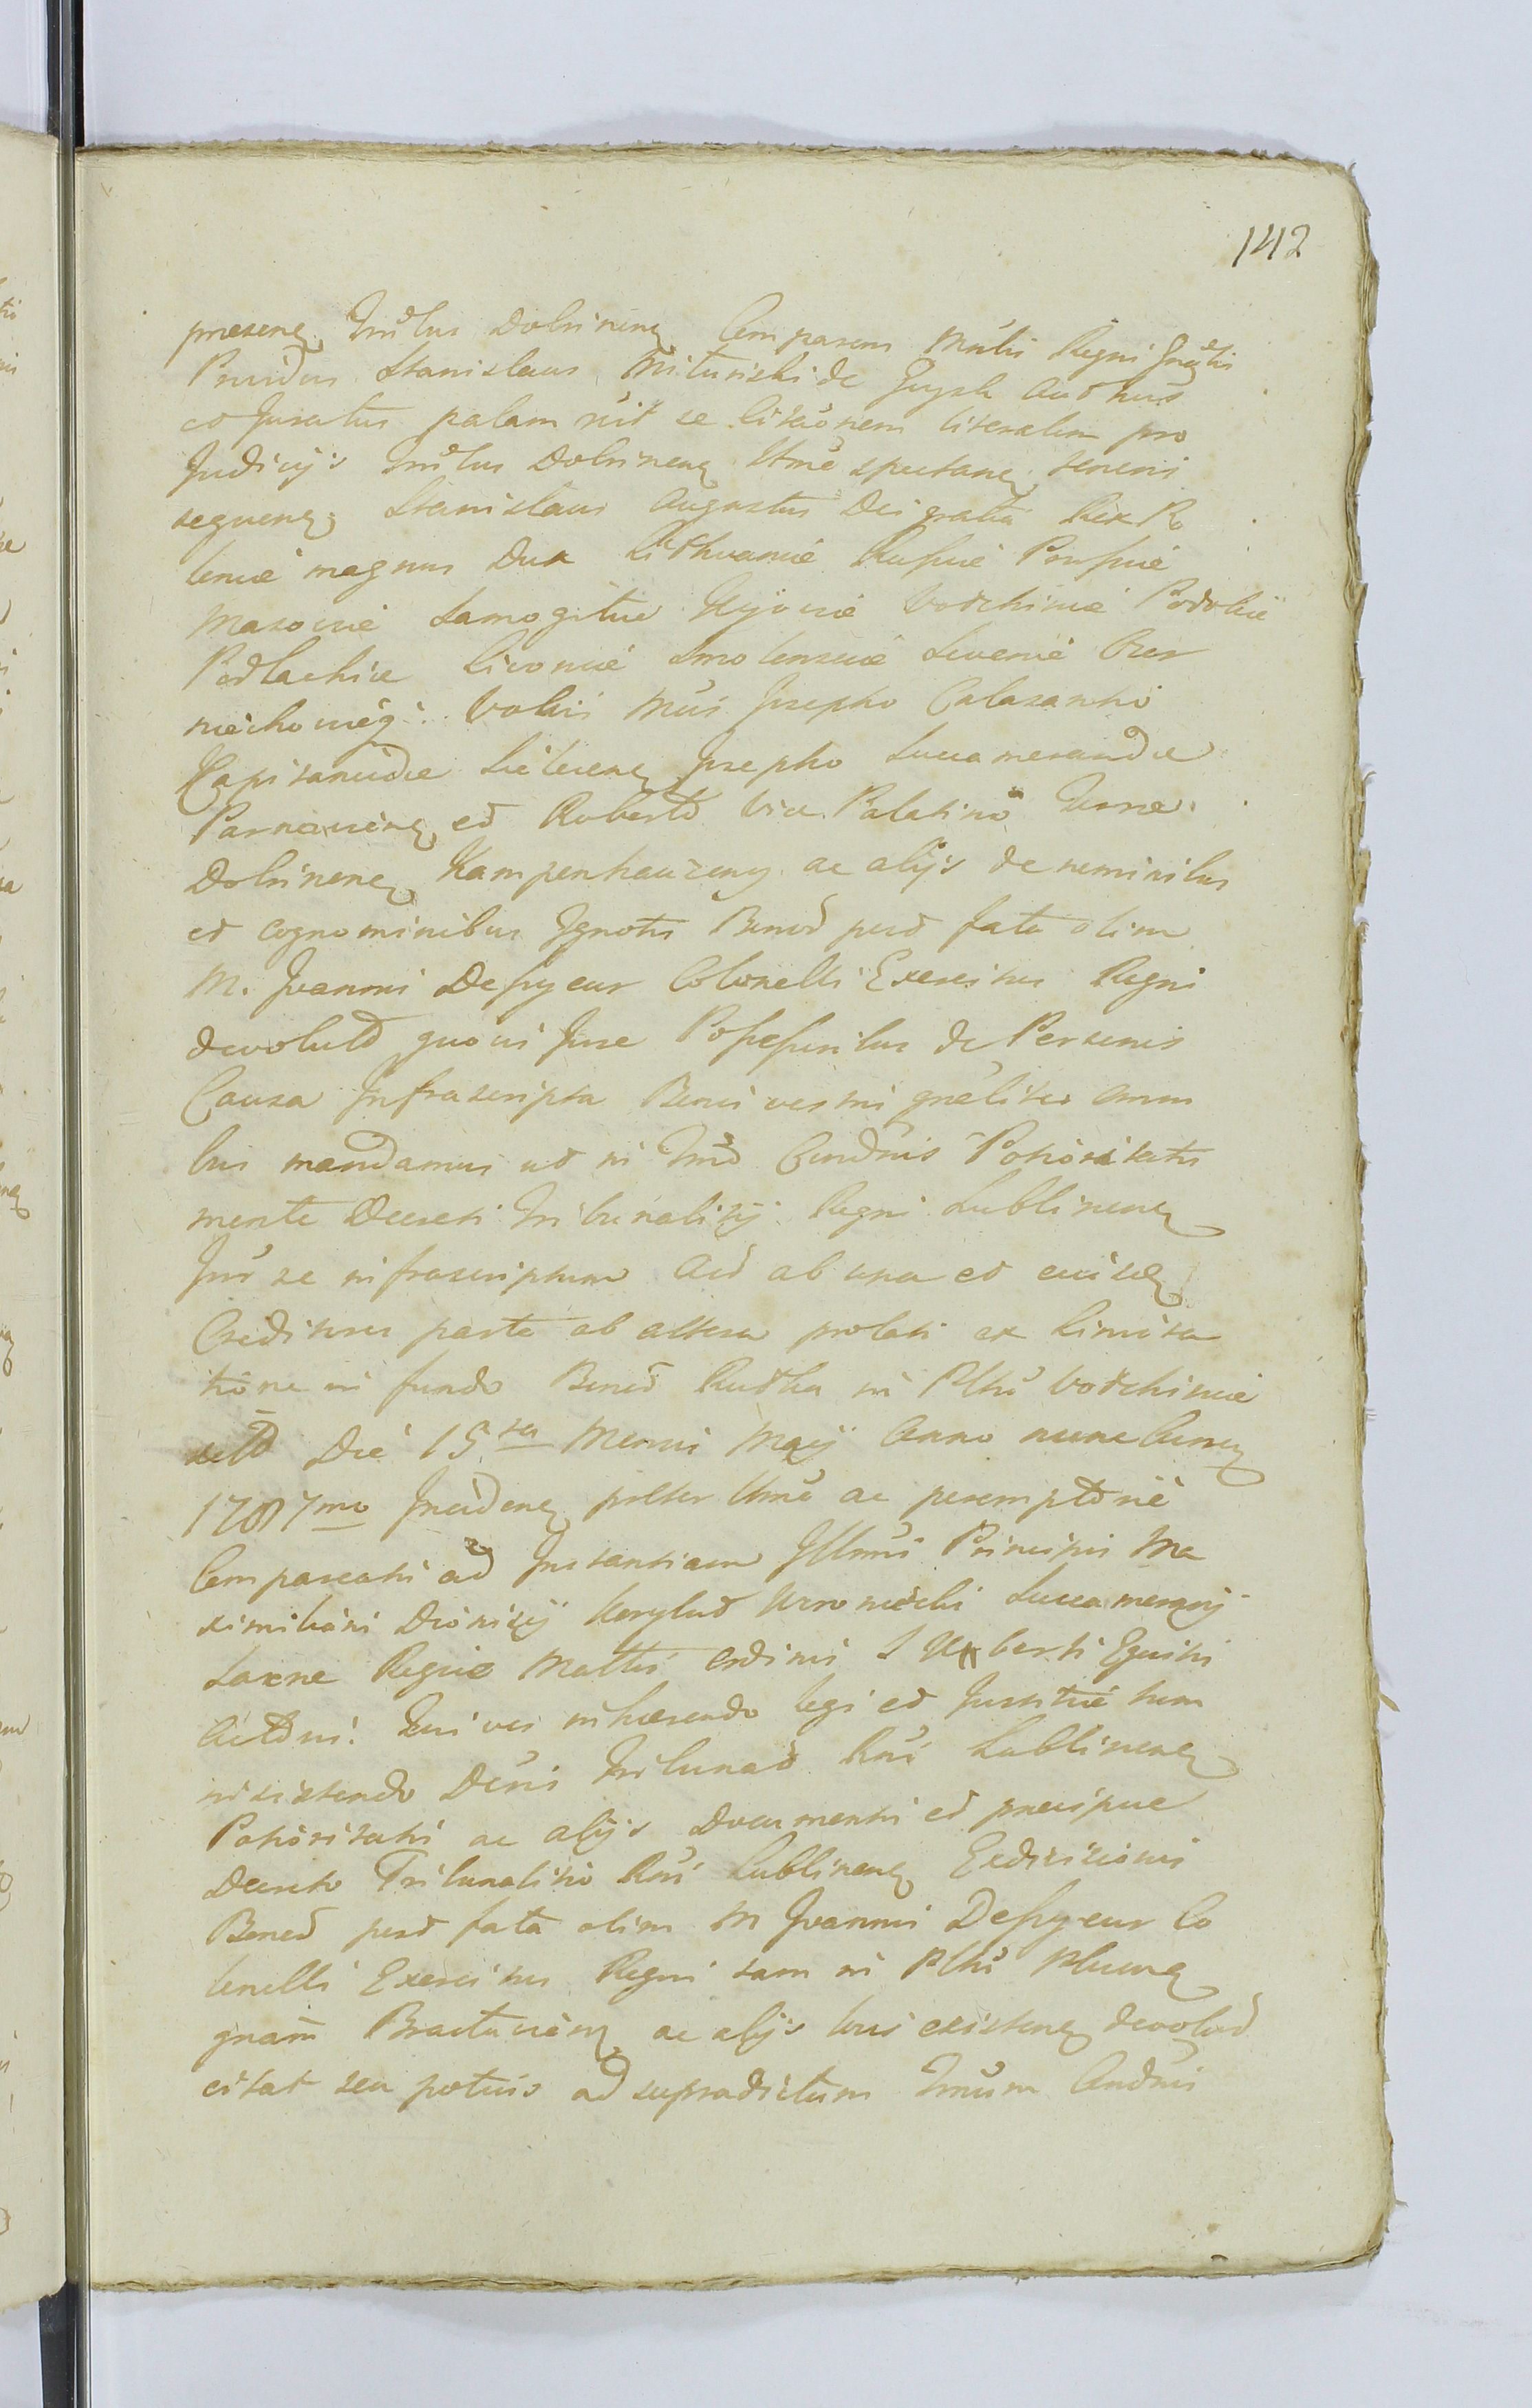 142
praesen. Trlus Dobrinen. Comparens Mnlis Regni Gnlis
Providus Stanislaus Miturski de Aud nus
et Juratus palam rcit se litaonem literalem pro
Judicijs Trlus Dobrinen. Ittme spectan. tenoris
sequen. Stanislaus Augustus Dei gratia Rex Po
loniae magnus Dux Lithvaniae Russiae Prussiae
Masoviae Samogitiae Kyjoviae Volchiniae Podoliae
Podlachiae Livoniae Smolensciae Severiae Czer
niechoviaeq. Vobis Mcis Josepho Calasantio
Capitaneidae Josepho Succamerandae
Parnavien. et Robert Vice Palatino Terrae
Dobrinen. Kampenhauzeny ac alijs de nominibus
et cognominibus Ignotis Bonor post fata olim
M. Joannis Defyeur Colonelli Exercitus Regni
devolut quovis Jure Possessoribus de Personis
Causa Infrascripta Bonis vestris gnaliter omni
bus mandamus ut in Tmo Condnis Potioritatis
mente Decreti Tribunalitij Regni Lublinen.
Inr se infrascriptum Act ab una et eius
Creditores parte ab altera prolati ex Limita
tione in fundo Bonor Rudka in Pltu Volchiniae
Die 15ta Mensis Maij Anno nunc Curren.
1787mo Inciden. plter ttme ac peremptorie
Compareatis ad Instantiam Illmi Principis Ma
ximiliani Dionizij Korybut Woroniecki Succamerarij
Sacrae Regiae Mattis ordinis S Huberti Equitis
Actoris. Qui vos inhaerendo legi et Justitiae tum
insistendo Tribunal Rni Lublinen.
Potioritatis ac alijs Documentis et praecipue
Decreto Tribunalitio Rni Lublinen. Exdivisionis
Bonor post fata olim M Joannis Defyeur Co
lonelli Exercitus Regni tam in Pltu
quam Braclavien. ac alijs locis existen. devolut
citat seu potius ad supradictum Tmum Condnis